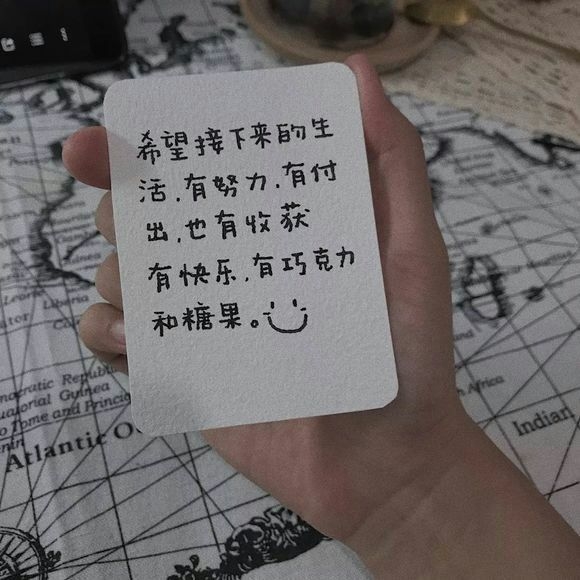 希望接下来的生
活,有努力,有付
出,也有收获
有快乐,有巧克力
和糖果。
Liberia
ocratic Republi
uatorial Guinea
o Tome and Princip
enin
Atlantic O
Africa
Indian